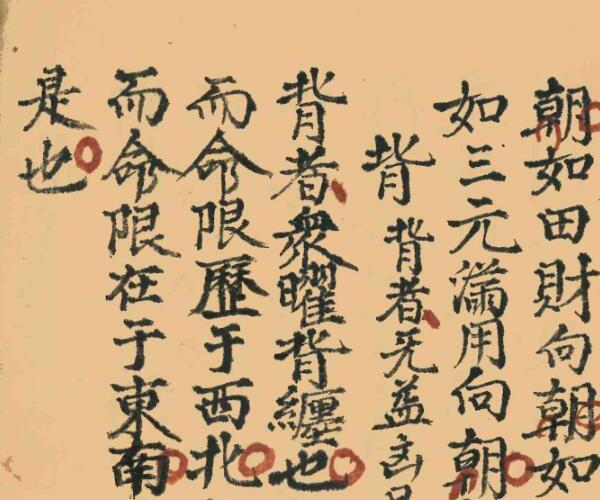 朝如田財向朝如
如三元滿用向朝
背背者旡益凶
背者衆曜背纏也
而命限歷于西北
而命限在于東南
是也